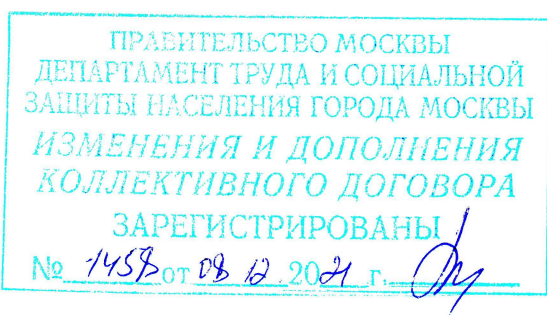 ПРАВИТЕЛЬСТВО МОСКВЫ
ДЕПАРТАМЕНТ ТРУДА И СОЦИАЛЬНОЙ
ЗАЩИТЫ НАСЕЛЕНИЯ ГОРОДА МОСКВЫ
ИЗМЕНЕНИЯ И ДОПОЛНЕНИЯ
КОЛЛЕКТИВНОГО ДОГОВОРА
ЗАРЕГИСТРИРОВАНЫ
№ от 08 12 2021 г.